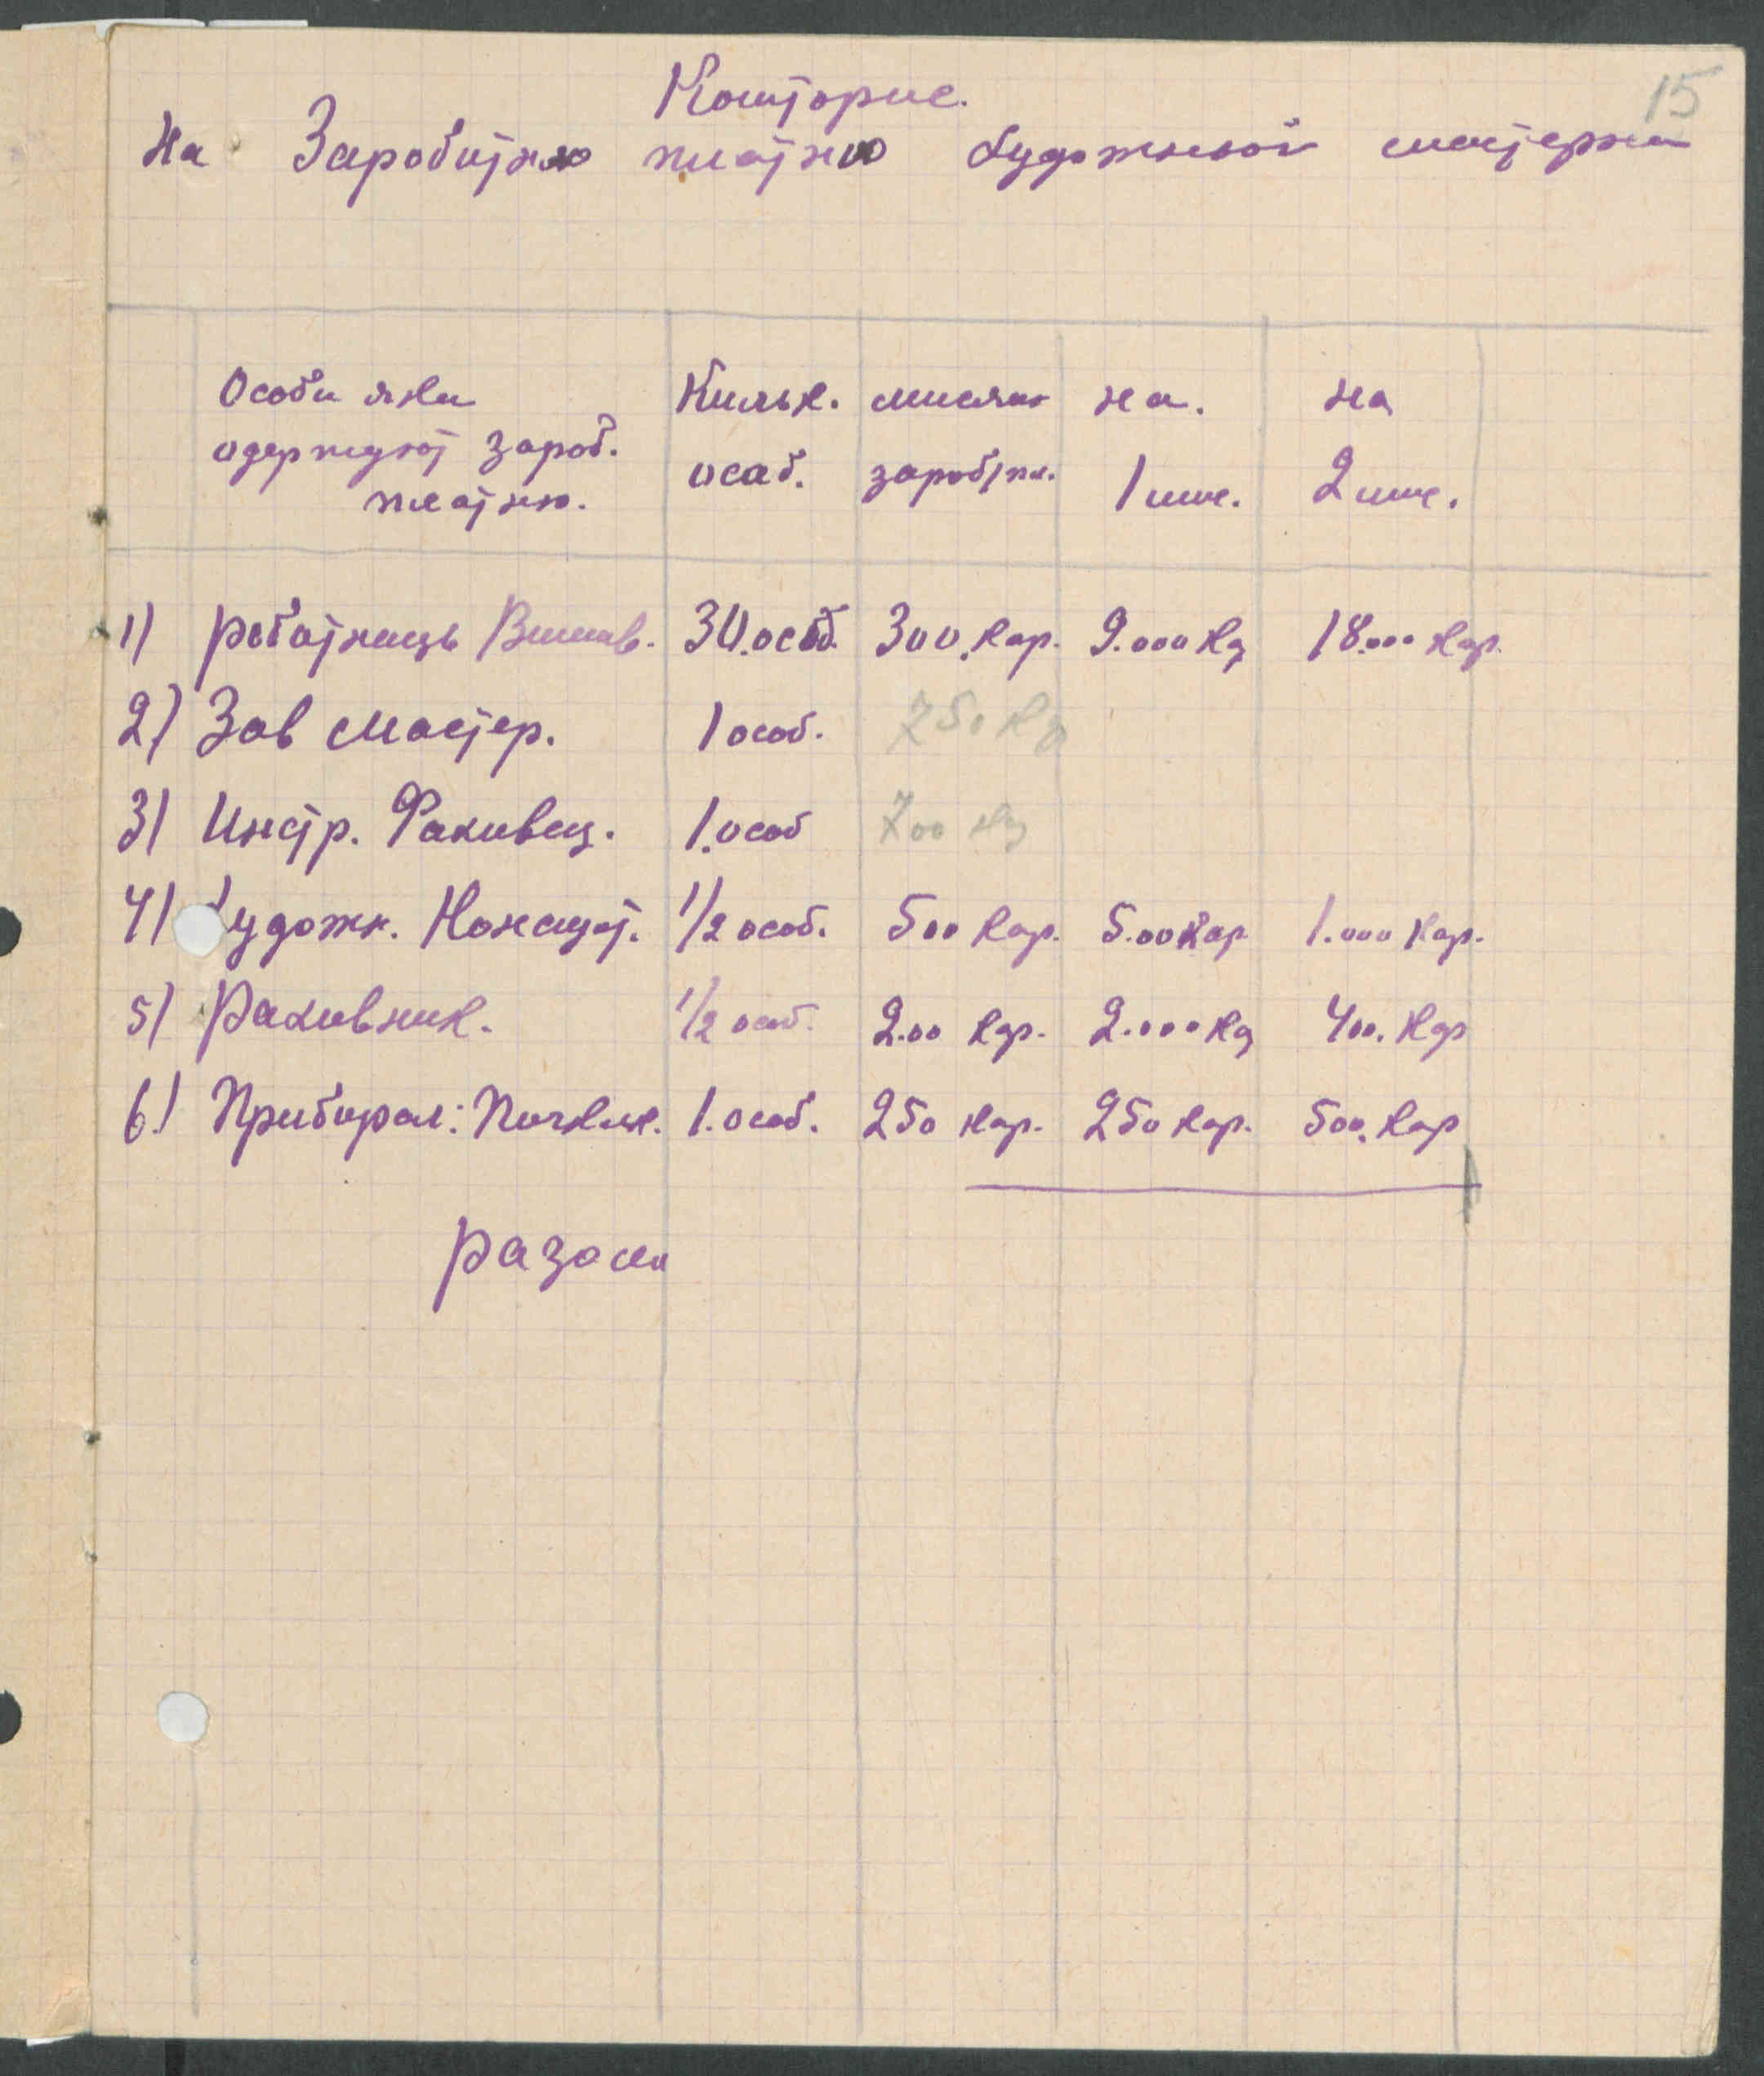 15
Кошторис.
На Заробитню платню художньой мастерни
Особи яки одержуют зароб. платню.
Кильк. особ.
мисячн заробтн.
на. 1 мис.
на 2 мис.
1) робитниць Вишив. 30.особ. 300.кар. 9.000 ка 18.000 кар.
2) Зав мастер. 1 особ. 750 ка
3) Инстр. Фахивец. 1.особ 700 ка
4) Художн. Консул. 1/2 особ. 500 кар. 5.00 кар 1.000 кар.
5) Рахивник. 1/2 особ. 2.00 кар. 2.000 ка 400. кар
6.) Прибирал: 1.особ. 250 кар. 250 кар. 500. кар
Разом